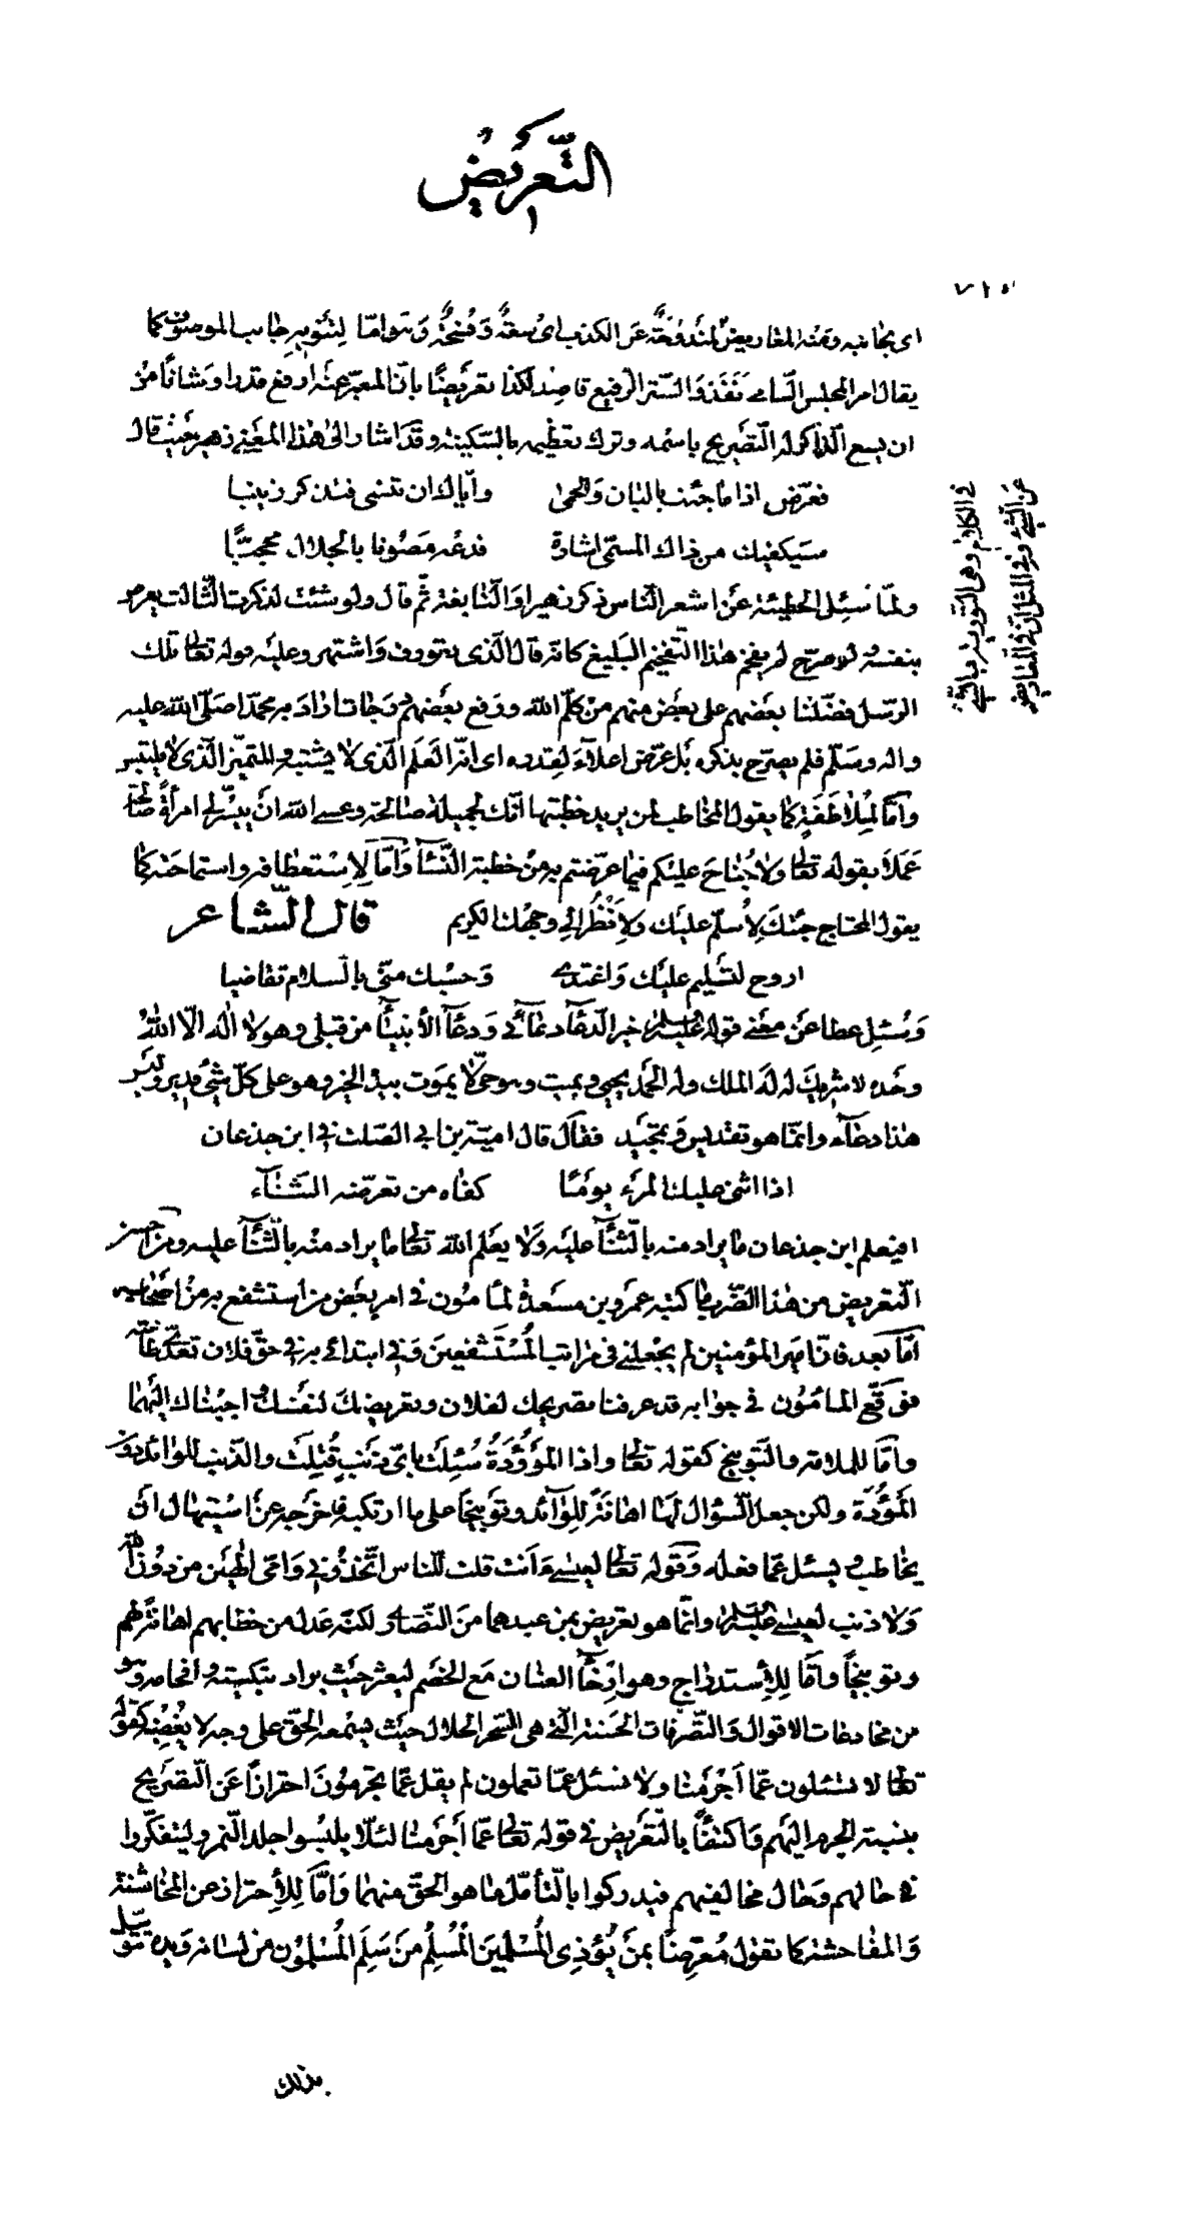 التّعريض
٧١٥
اى بجانبه ومنه المعاريض لمندوحة عن الكذب اى سعة وفسحة وهو امّا لتنويه جانب الموصوف كما
يقال امر المجلس السّامى نفذ والسّتر الرّفيع قاصد لكذا تعريضًا بانّ المعبّر عنه ارفع قدرا وشانًا من
ان يسع الذّاكر له التّصريح باسمه وترك تعظيمه بالسّكينة وقد اشار الى هذا المعنى زهير حيث قال
فعرّض اذا ما جئت بالبان والحمى وايّاك ان تنسى فتذكر زينبا
سيكفيك من ذاك المسمّى اشارة فدعه مصونا بالجلال محجّبًا
ولمّا سئل الحطيئة عن اشعر النّاس ذكر زهيرا والنّابغة ثمّ قال ولو شئت لذكرت الثّالث يعرض
بنفسه لو صرّح لم يفخم هذا التّفخيم البليغ كانّه قال الّذى يعتروف واشتهر وعليه قوله تعالى تلك
الرّسل فضّلنا بعضهم على بعض منهم من كلّم الله ورفع بعضهم درجات اراد به محمّدا صلّى الله عليه
واله وسلّم فلم يصرّح بذكره بل عرّض اعلاءً لقدره اى انّه العلم الّذى لا يشتبه والمتميّز الّذى لا يلتبس
وامّا لملاطفة كما يقول المخاطب لمن يريد خطبتها انّك لجميلة صالحة وعسى الله ان ييسّر لى امرأةً صالحة
عملا بقوله تعالى ولا جناح عليكم فيما عرّضتم به من خطبة النّساء وامّا لاستعطافه واستماحته كما
يقول المحتاج جئتك لاسلّم عليك ولانظر الى وجهك الكريم قال الشّاعر
اروح لتسليم عليك واغتدى وحسبك منّى بالسّلام تقاضيا
وسئل عطا عن معنى قوله عليه السلام خير الدّعاء دعائى ودعاء الأنبياء من قبلى وهو لا اله الّا الله
وحده لا شريك له له الملك وله الحمد يحيى ويميت وهو حىّ لا يموت بيده الخير وهو على كلّ شىء قدير وليس
هذا دعاء وانّما هو تقديس وتمجيد فقال كما قال اميّة بن ابى الصّلت فى ابن جذعان
اذا اثنى عليك المرء يومًا كفاه من تعرّضه الثّناء
افيعلم ابن جذعان ما يراد منه بالثّناء عليه ولا يعلم الله تعالى ما يراد منه بالثّناء عليه ومن احسن
التّعريض من هذا الضّرب ما كتبه عمرو بن مسعدة لمامون فى امر بعض من استشفع به من اصحابه
امّا بعد فانّ امير المؤمنين لم يجعلنى فى مراتب المستشفعين وفى ابتدائه به فى حقّ فلان تعدّى طاعته
فوقّع المأمون فى جوابه قد عرفنا تصريحك لفلان وتعريضك لنفسك واجبناك اليهما
وامّا للملامة والتّوبيخ كقوله تعالى واذا الموؤدة سئلت باىّ ذنب قتلت والذّنب للوائد دون
المؤودة ولكن جعل السّؤال لها اهانة للوائد وتوبيخًا على ما ارتكبه فاخرجه عن استيهال ان
يخاطب ويسئل عمّا فعله وقوله تعالى لعيسى ءانت قلت للنّاس اتّخذونى وامّى الهين من دون الله
ولا ذنب لعيسى عليه السلام وانّما هو تعريض بمن عبدهما من النّصارى لكنّه عدل من خطابهم اهانة لهم
وتوبيخًا وامّا للأستدراج وهو ارخاء العنان مع الخصم ليعثر حيث يراد تبكيته وافحامه وهو
من مخادعات الاقوال والتّصرفات الحسنة الّتى هى السّحر الحلال حيث يسمعه الحقّ على وجه لا يغضبه كقوله
تعالى لا تسئلون عمّا اجرمنا ولا نسئل عمّا تعملون لم يقل عمّا تجرمون احترازًا عن التّصريح
بنسبة الجرم اليهم واكتفاءً بالتّعريض فى قوله تعالى عمّا اجرمنا لئلّا يلبسوا جلد النّمر وليتفكّروا
فى حالهم وحال مخالفيهم فيدركوا بالتّأمّل ما هو الحقّ منهما وامّا للأحتراز عن المخاشنة
والمفاحشة كما تقول معرّضًا بمن يؤذى المسلمين المسلم من سلم المسلمون من لسانه ويده تتوسّل
بذلك
فى الكلام وهى التّورية بالشّىء
عن الشّىء وفى المثل انّ فى المعاريض